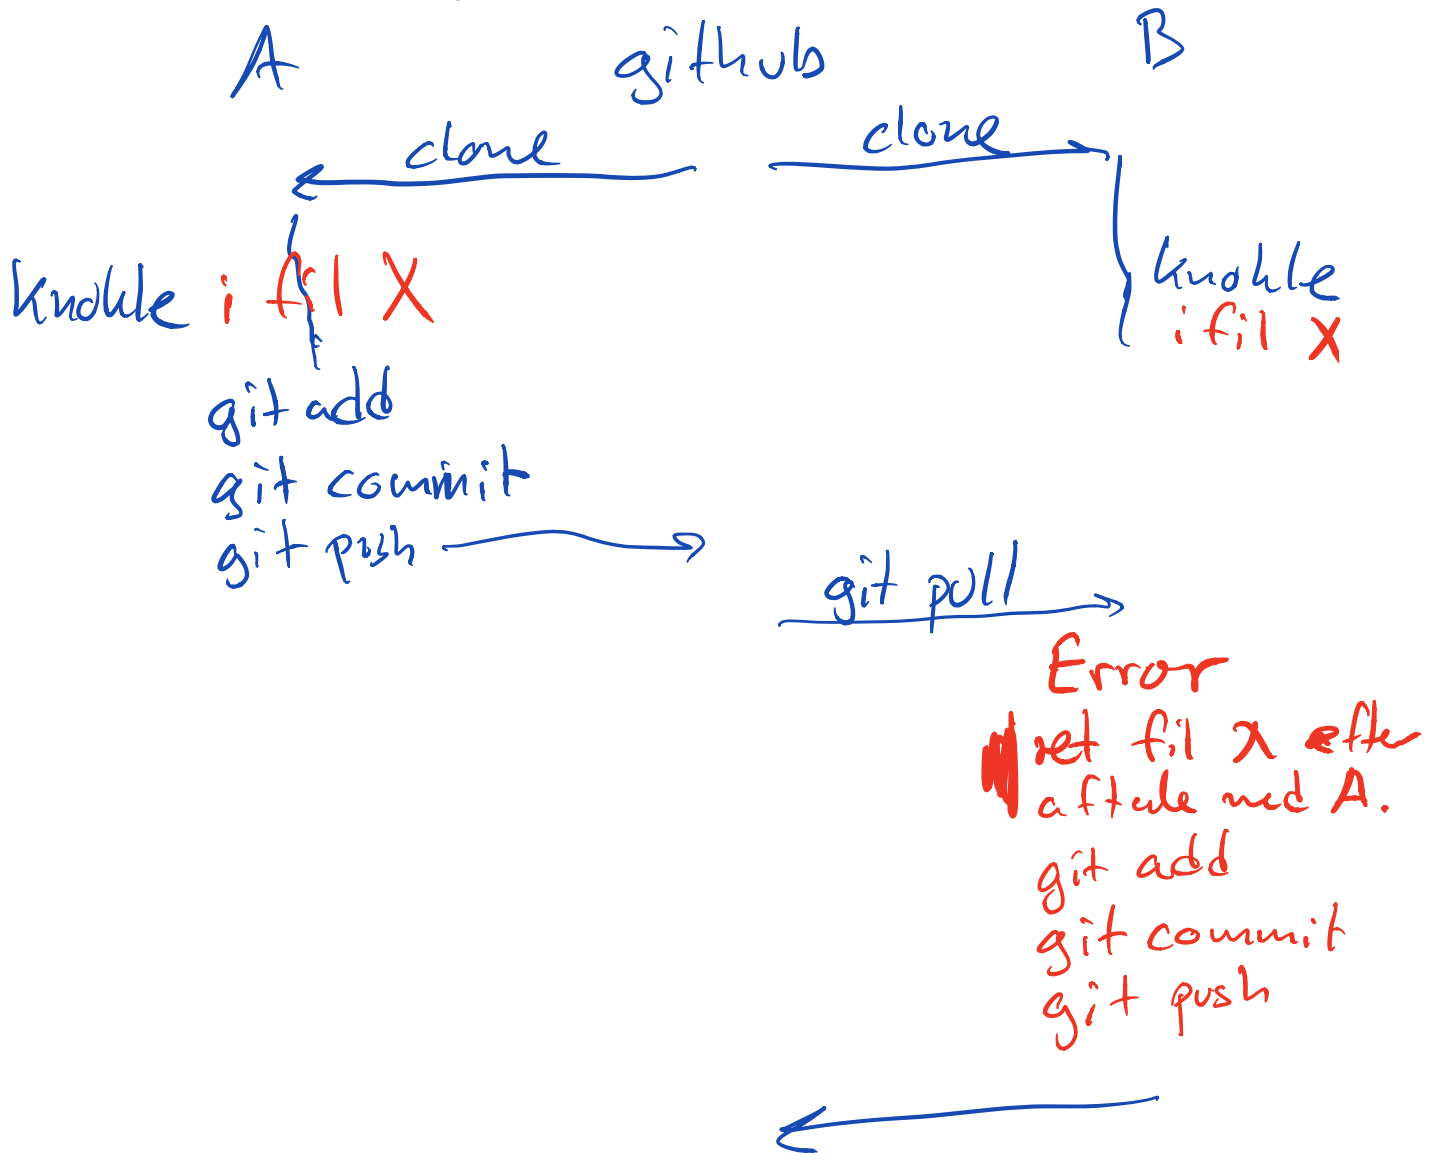 A github B
clone clone
knokle i fil X
knokle
i fil X
git add
git commit
git push
git pull
Error
ret fil X efter
aftale med A.
git add
git commit
git push